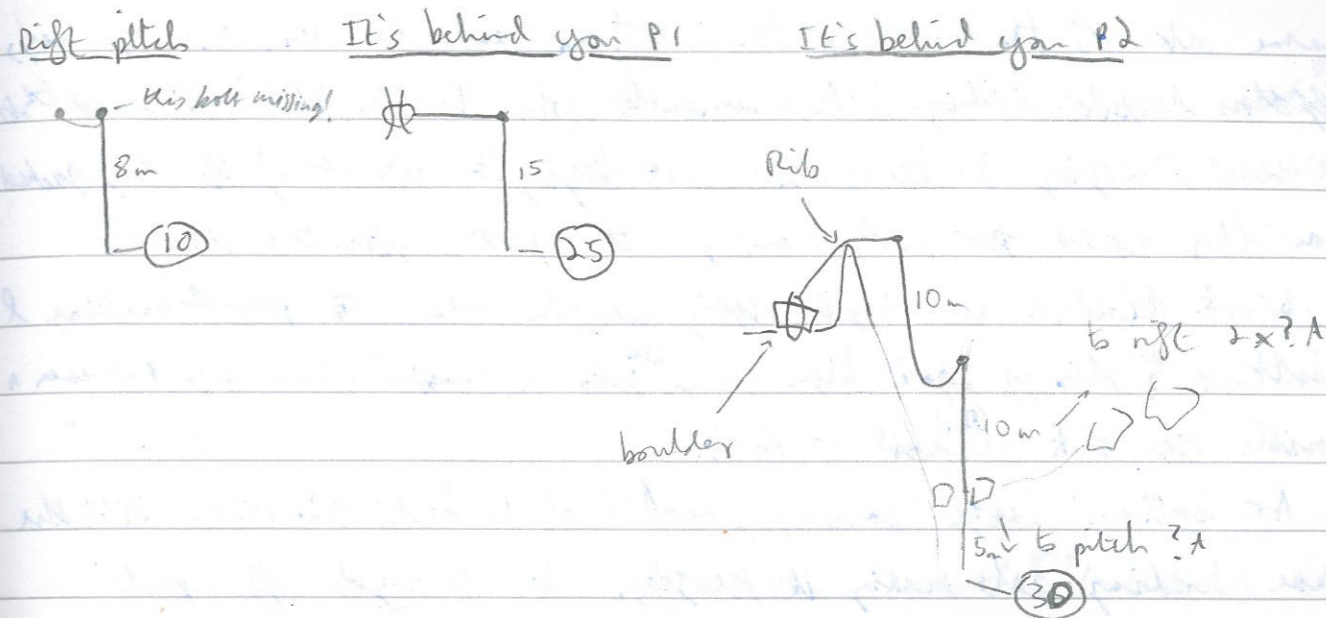 Rift pitch
- this bolt missing!
8m
10
It's behind you P1
15
25
It's behind you P2
Rib
10m
boulder
to rift 2x?A
10m
5m to pitch ?A
30